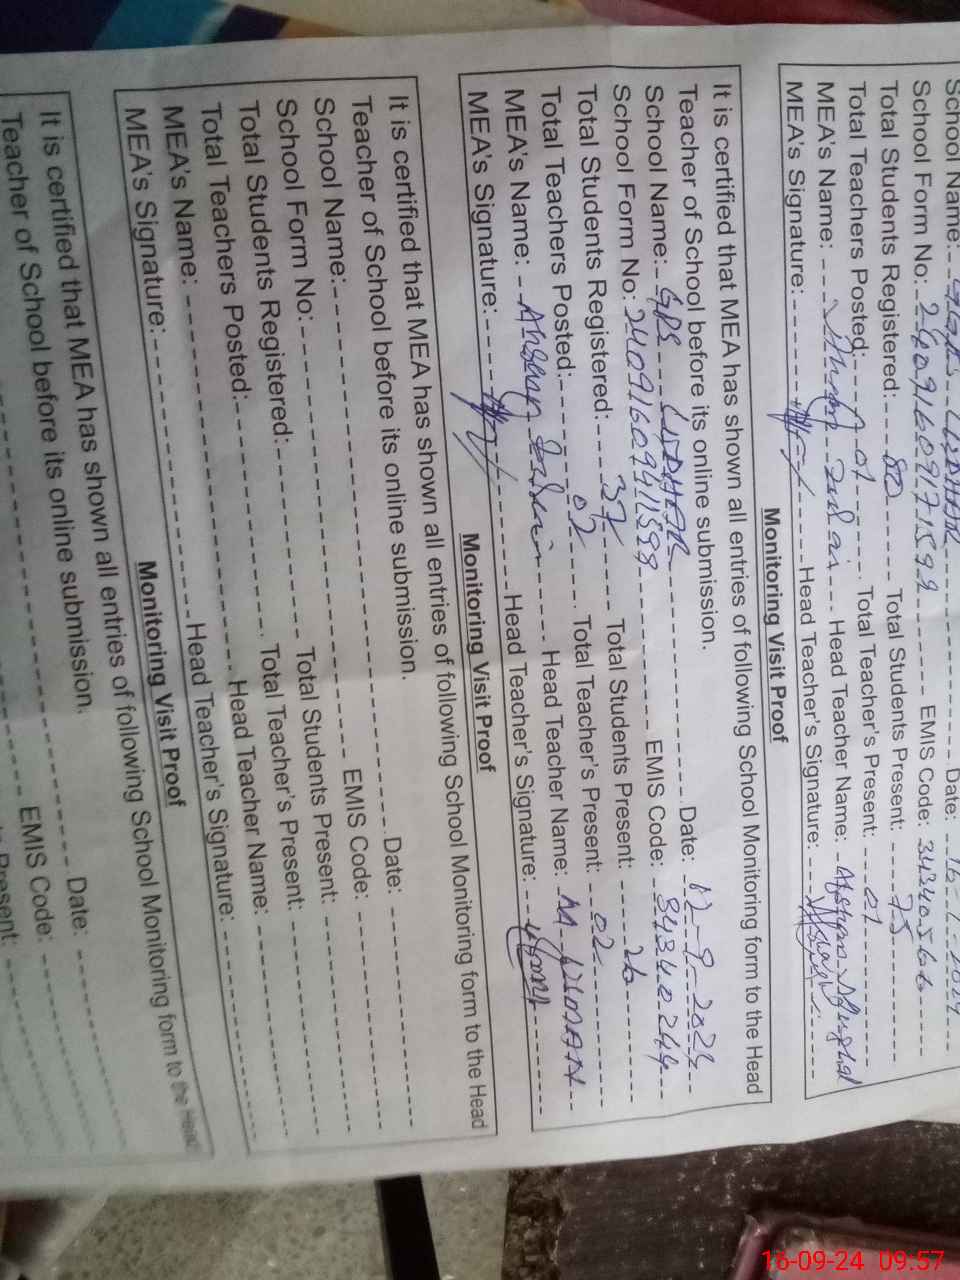 School Name: Date: 16-
School Form No: 24091609171599 EMIS Code: 34340566
Total Students Registered: 80 Total Students Present: 75
Total Teachers Posted: 01 Total Teacher's Present: 01
MEA's Name: Head Teacher Name: Mughal
MEA's Signature: Head Teacher's Signature:
Monitoring Visit Proof
It is certified that MEA has shown all entries of following School Monitoring form to the Head
Teacher of School before its online submission.
School Name: GPS Date: 12-9-2024
School Form No: EMIS Code: 84340249
Total Students Registered: 37 Total Students Present: 26
Total Teachers Posted: 02 Total Teacher's Present: 02
MEA's Name: Head Teacher Name: M
MEA's Signature: Head Teacher's Signature:
Monitoring Visit Proof
It is certified that MEA has shown all entries of following School Monitoring form to the Head
Teacher of School before its online submission.
School Name: Date:
School Form No: EMIS Code:
Total Students Registered: Total Students Present:
Total Teachers Posted: Total Teacher's Present:
MEA's Name: Head Teacher Name:
MEA's Signature: Head Teacher's Signature:
Monitoring Visit Proof
It is certified that MEA has shown all entries of following School Monitoring form to the Head
Teacher of School before its online submission.
Date:
EMIS Code:
Present:
16-09-24 09:57